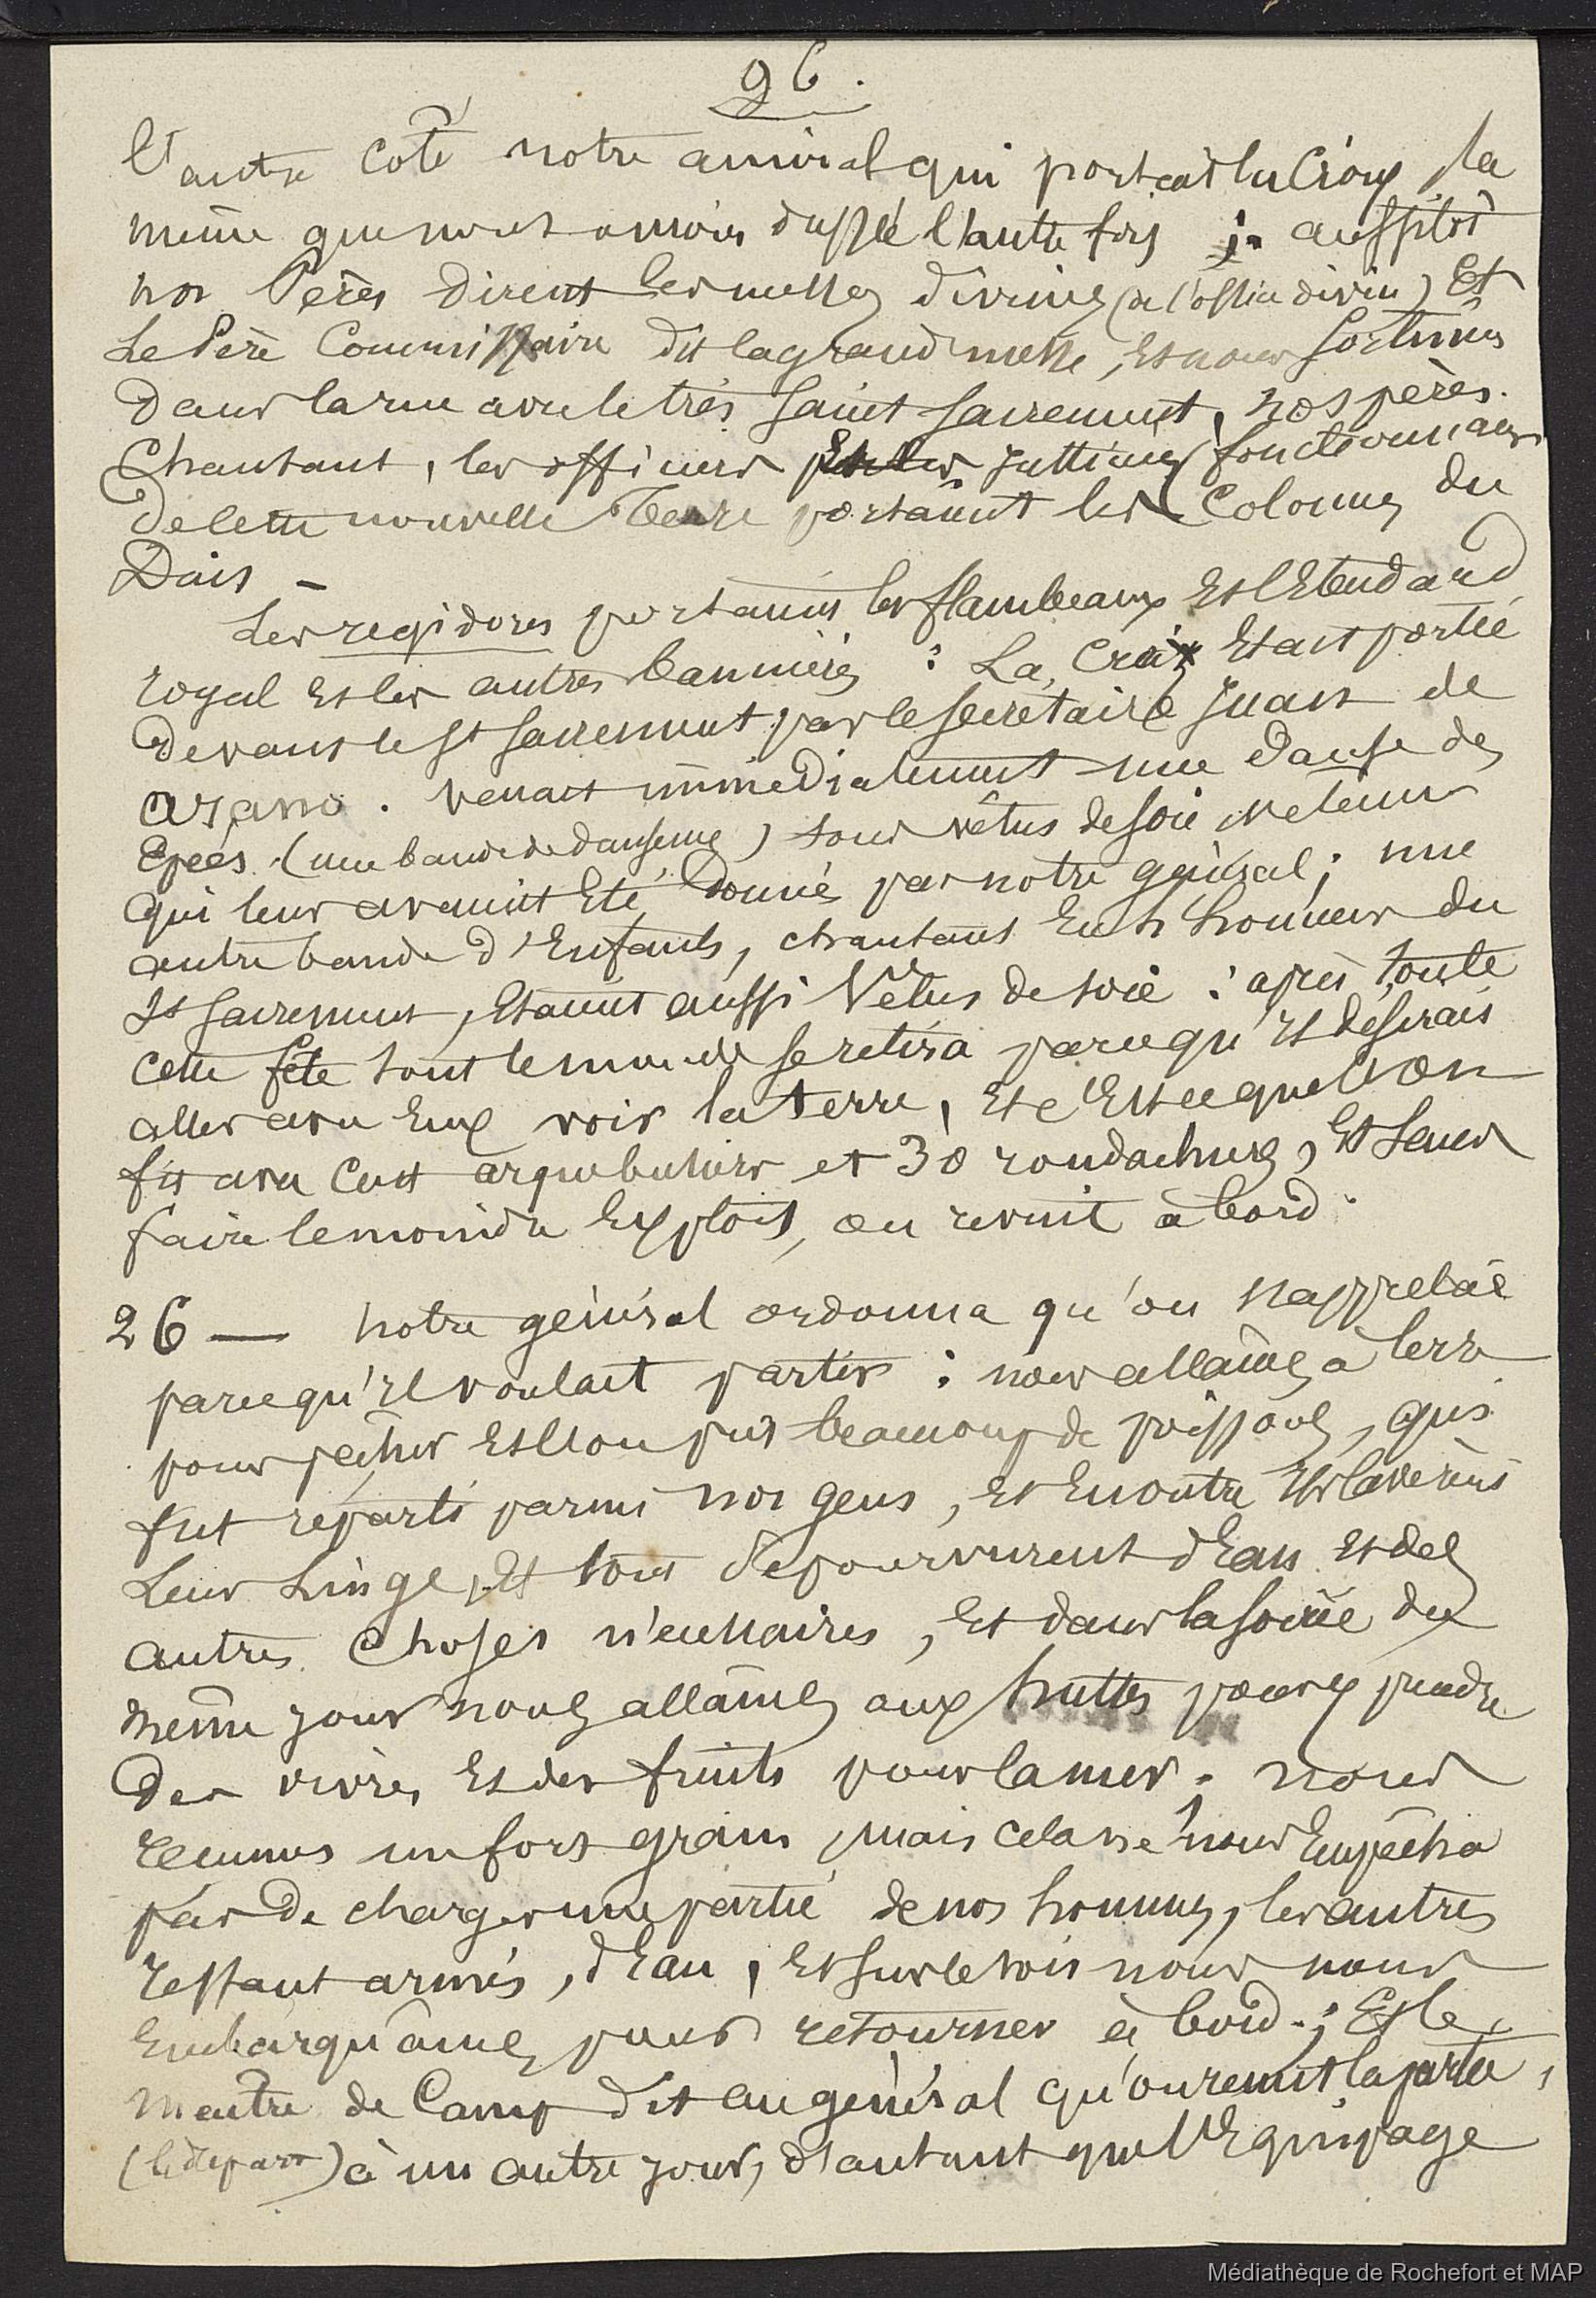 96.
l'autre coté notre amiral qui portait la Croix, la
même que nous avions dressée l'autre fois ; aussitôt
nos Pères dirent les messes divines (à l'office divin) Et
Le Père Commissaire dit la grand messe, et nous sortimes
dans la rue avec le très Saint Sacrement, nos pères
Chantant, les officiers justicies (fonctionnaires
de cette nouvelle Terre portaient les Colonnes du
Dais –
Les regidores portaient les flambeaux et l'Etendard
royal et les autres bannières : La Croix Etait portée
devant le St Sacrement par le Secrétaire Juan de
Arano. Venait immédiatement une danse des
Epées (une bande de danseurs) tous vêtus de soie
qui leur avaient Eté donnés par notre général ; une
autre bande d'Enfants, chantant En l'honneur du
St Sacrement, Etaient aussi Vêtus de soie : après toute
cette fête tout le monde se retira parce qu'il désirait
aller avec Eux voir la terre, Et c'Est ce que l'on
fit avec Cent arquebusiers et 30 rondachers, Et Sans
faire le moindre Exploit, on revint à bord.
26 — Notre général ordonna qu'on s'apprêtât
parce qu'il voulait partir : nous allâmes à terre
pour pêcher Et l'on prit beaucoup de poissons, qui
fut réparti parmi nos gens, Et En outre Ils lavèrent
Leur Linge, Et tous se pourvurent d'Eau Et des
autres choses nécessaires, Et dans la soirée du
même jour nous allâmes aux huttes pour y prendre
des vivres Et des fruits pour la mer ; nous
reçumes un fort grain, mais cela ne nous Empêcha
pas de charger une partie de nos hommes, les autres
restant armés, d'Eau, Et sur le soir nous nous
Embarquâmes pour retourner à bord ; Et le
Maitre de Camp dit au général qu'on remit la partie,
(le départ) à un autre jour, d'autant que l'Equipage
Médiathèque de Rochefort et MAP